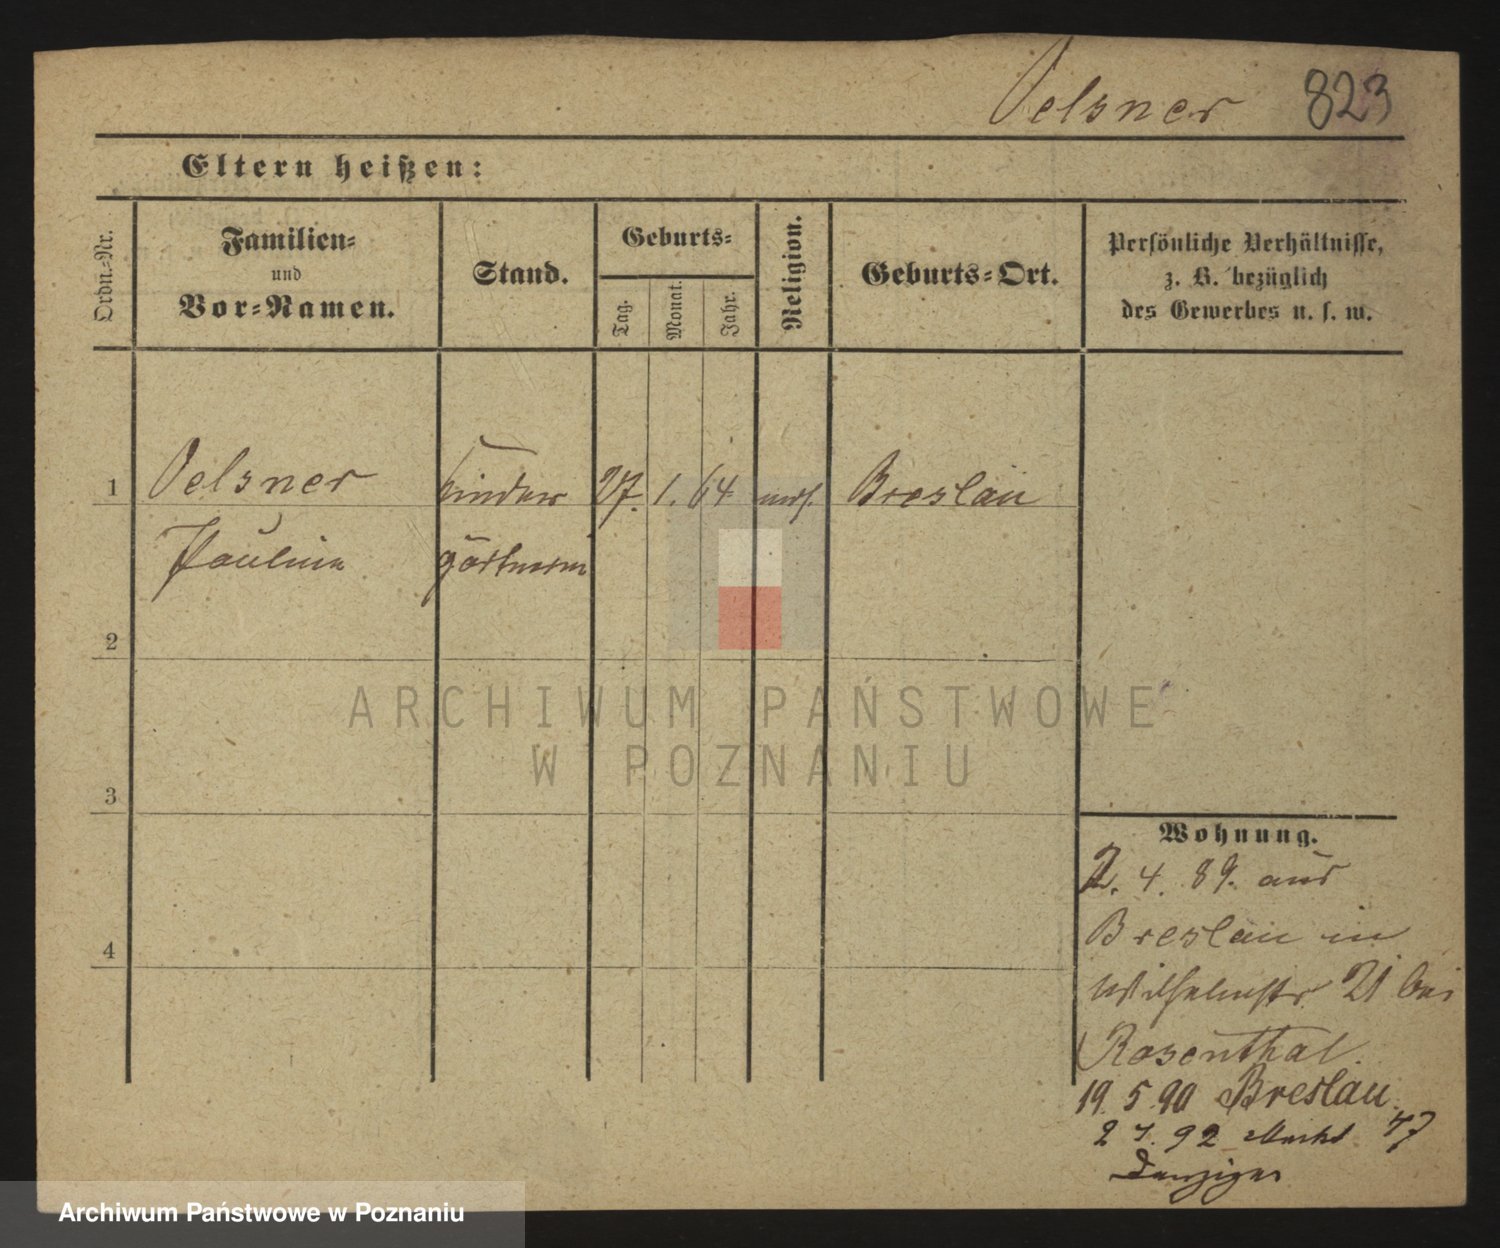 Oelsner 823
Eltern heißen:
Ordn.-Nr.
Familien-
und
Vor-Namen.
Stand.
Geburts-
Tag.
Monat.
Jahr.
Religion.
Geburts-Ort.
Persönliche Verhältnisse,
z. B. bezüglich
des Gewerbes u. s. w.
1 Oelsner Kinder 27. 1. 64 mos. Breslau
Pauline gärtnerin
2
3
4
Wohnung.
2. 4. 89. aus
Breslau in
Wilhelmstr 21 bei
Rosenthal.
19. 5. 90 Breslau.
2 4. 92 Markt 47
Danziger
ARCHIWUM PAŃSTWOWE
W POZNANIU
Archiwum Państwowe w Poznaniu